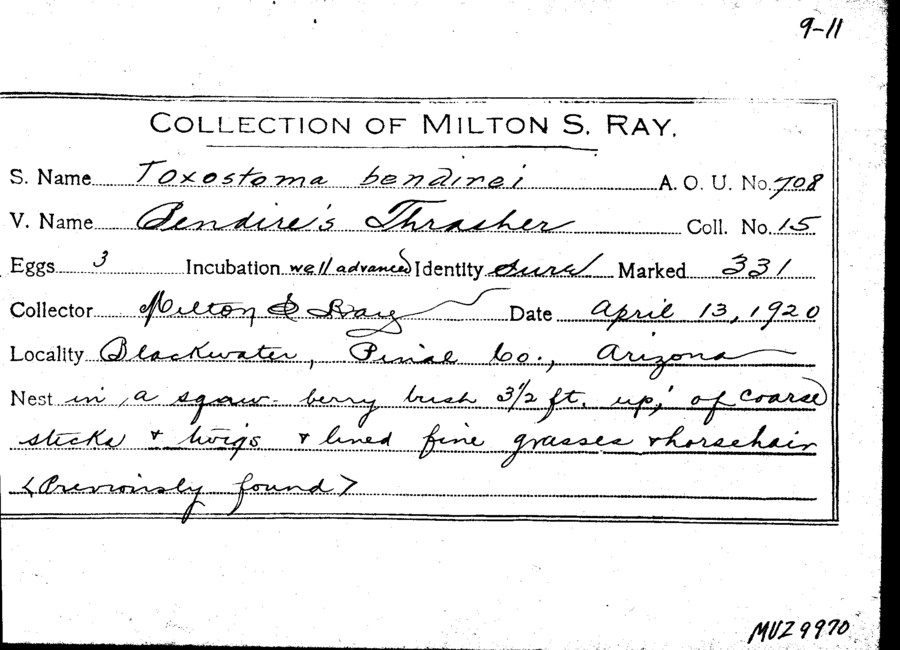 9-11
COLLECTION OF MILTON S. RAY.
S. Name Toxostoma bendirei A. O. U. No. 708
V. Name Bendire's Thrasher Coll. No. 15
Eggs 3 Incubation well advanced Identity sure Marked 331
Collector Milton S Ray Date April 13, 1920
Locality Blackwater, Pinal Co., Arizona
Nest in a sqaw-berry bush 3 1/2 ft. up; of coarse
sticks & twigs & lined fine grasses & horsehair
<Previously found>
MVZ 9970